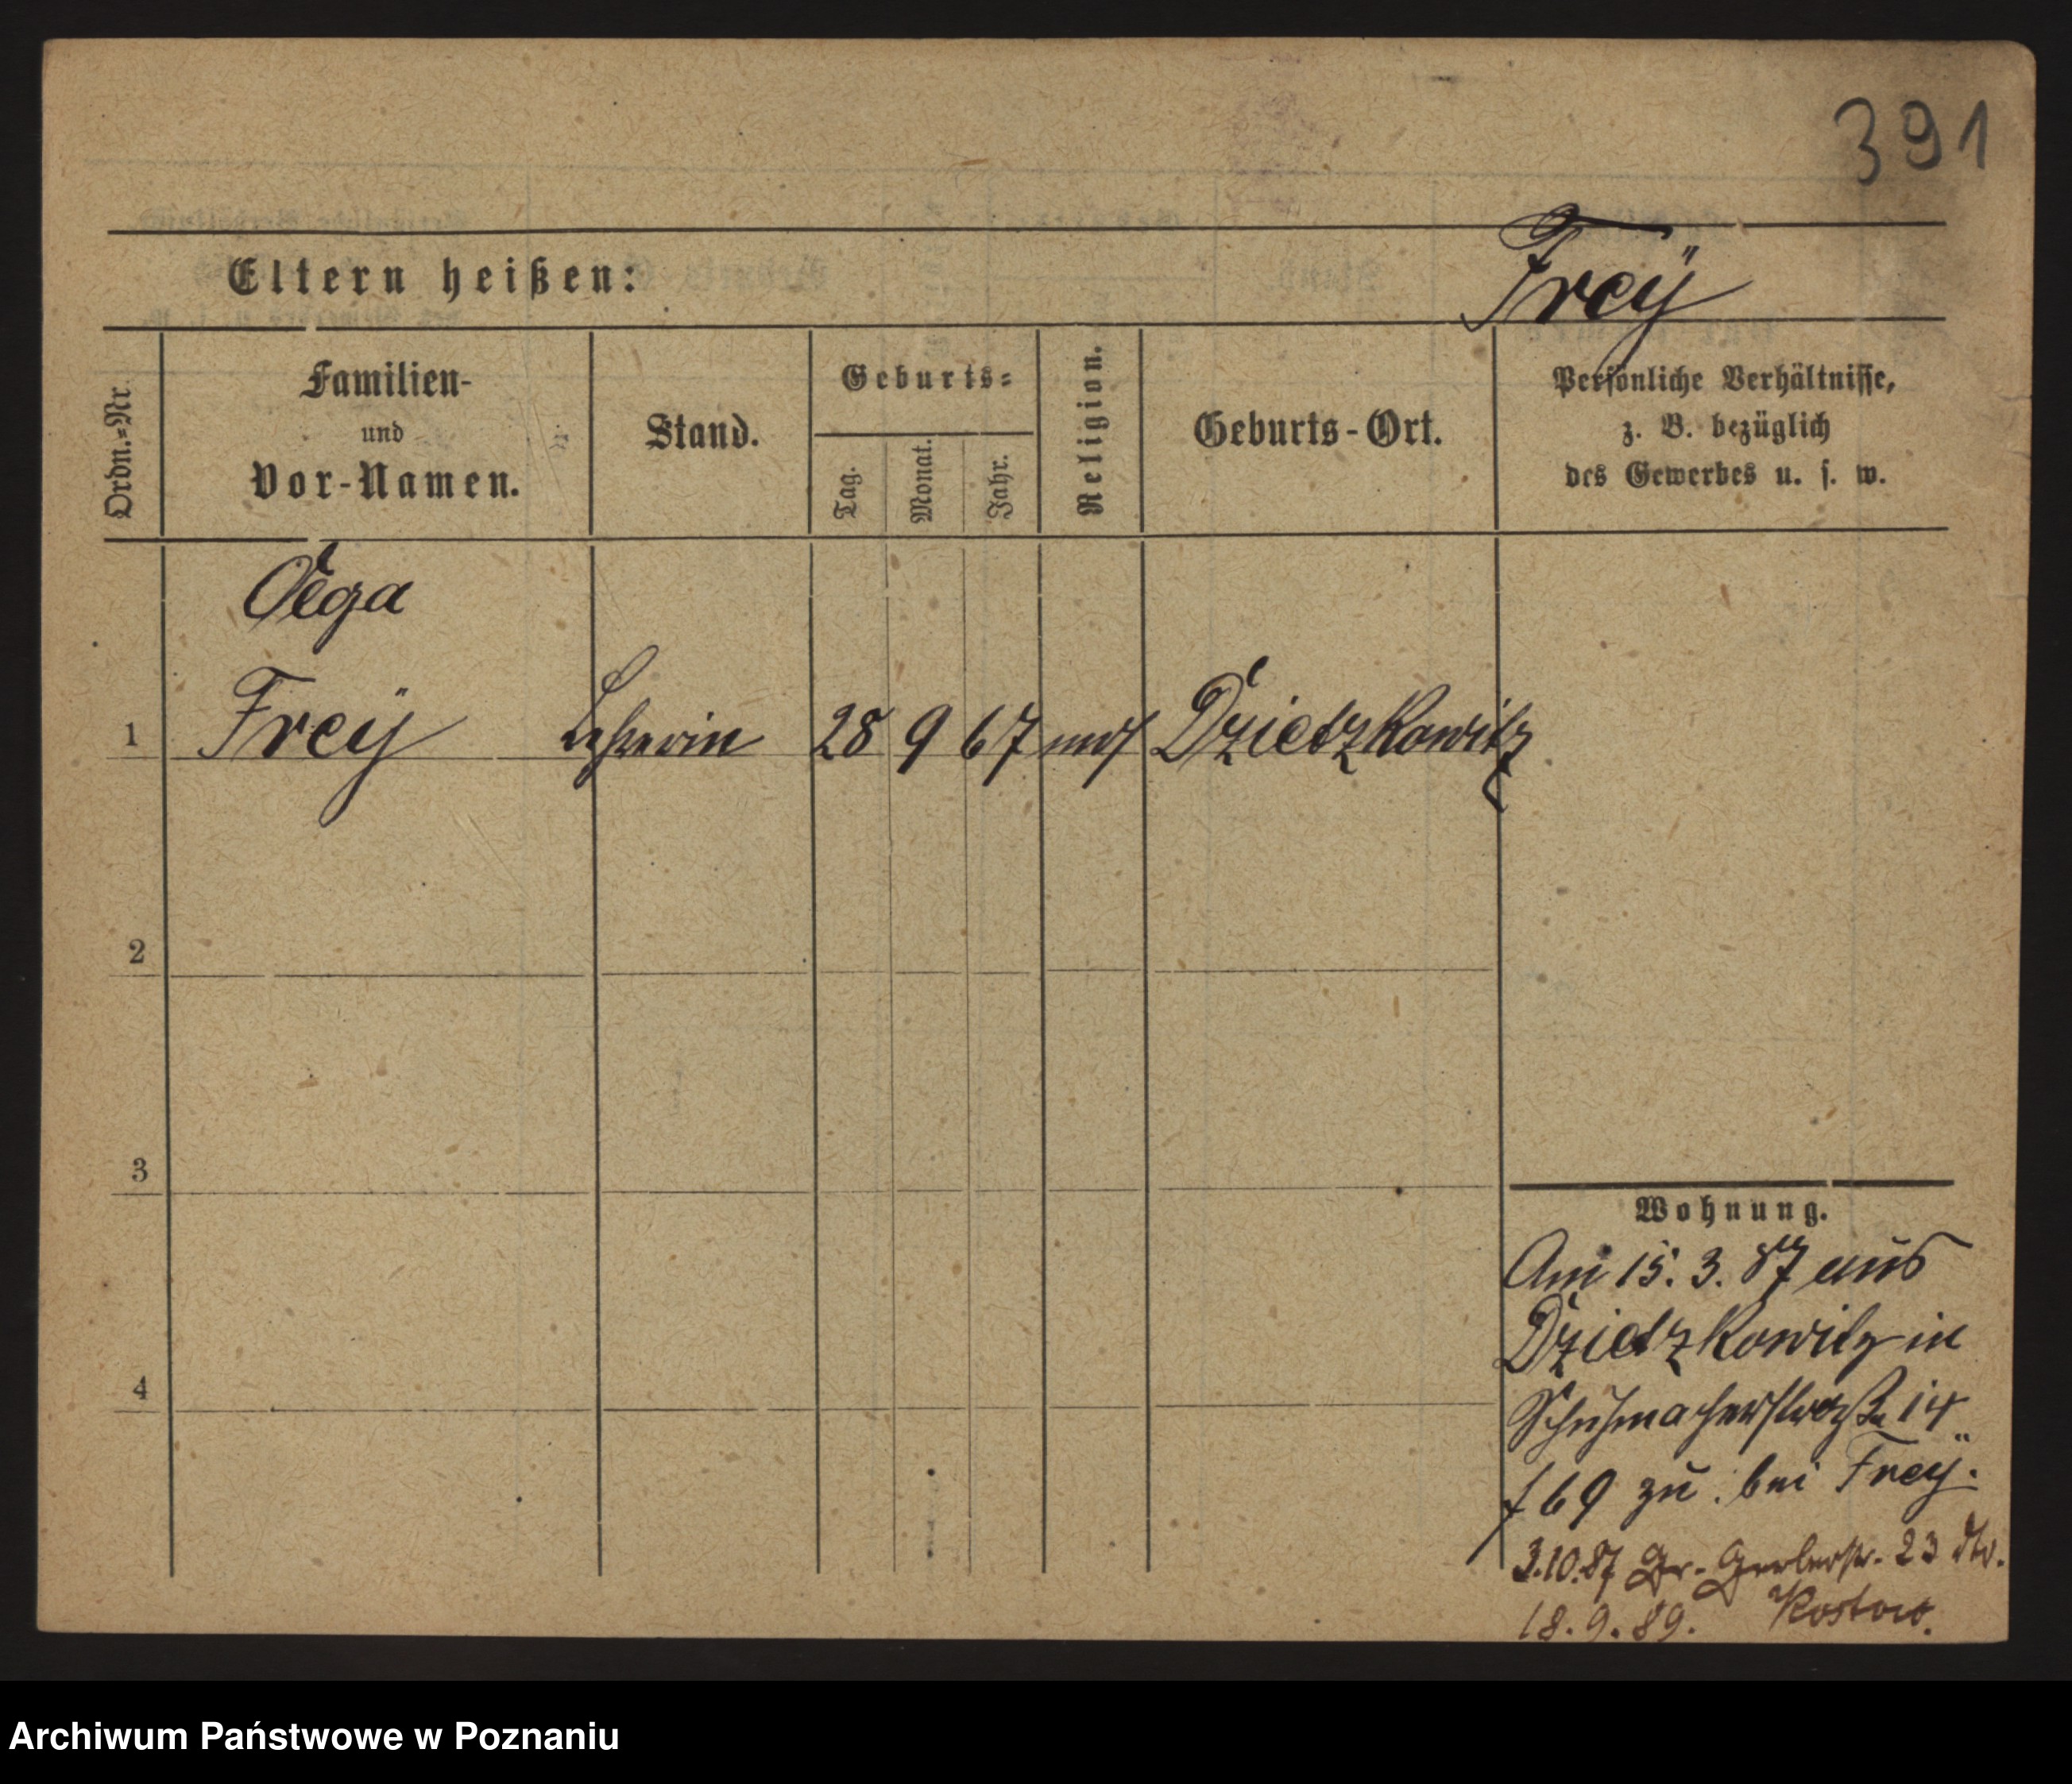 391
Eltern heißen:
Freÿ
Ordn.=Nr.
Familien-
und
Vor-Namen.
Stand.
Geburts=
Tag.
Monat.
Jahr.
Religion.
Geburts-Ort.
Persönliche Verhältnisse,
z. B. bezüglich
des Gewerbes u. s. w.
Olga
1 Freÿ Lehrerin 28 9 67 Dzietzkowitz
2
3
4
Wohnung.
Am 15. 3. 87 aus
Dzietzkowitz in
Schuhmacherstraße 14
f 69 zu bei Freÿ.
3.10.87 Gr. Gerberstr. 23
18.9.89. Rostow.
Archiwum Państwowe w Poznaniu